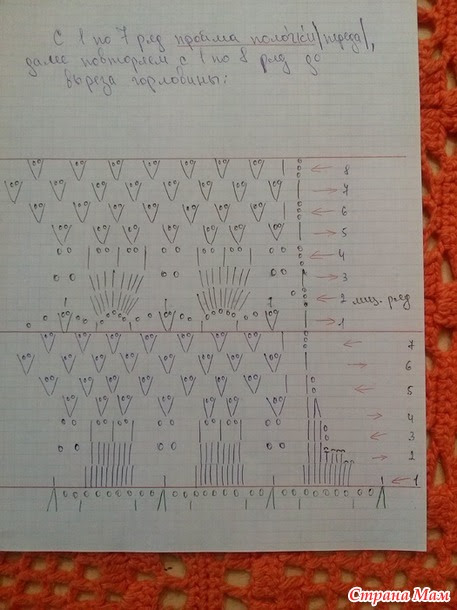 С 1 по 7 ряд пройма полочки/переда/,
далее повторяем с 1 по 8 ряд до
выреза горловины:
8
7
6
5
4
3
2 лиц. ряд
1
7
6
5
4
3
2
1
Страна Мам